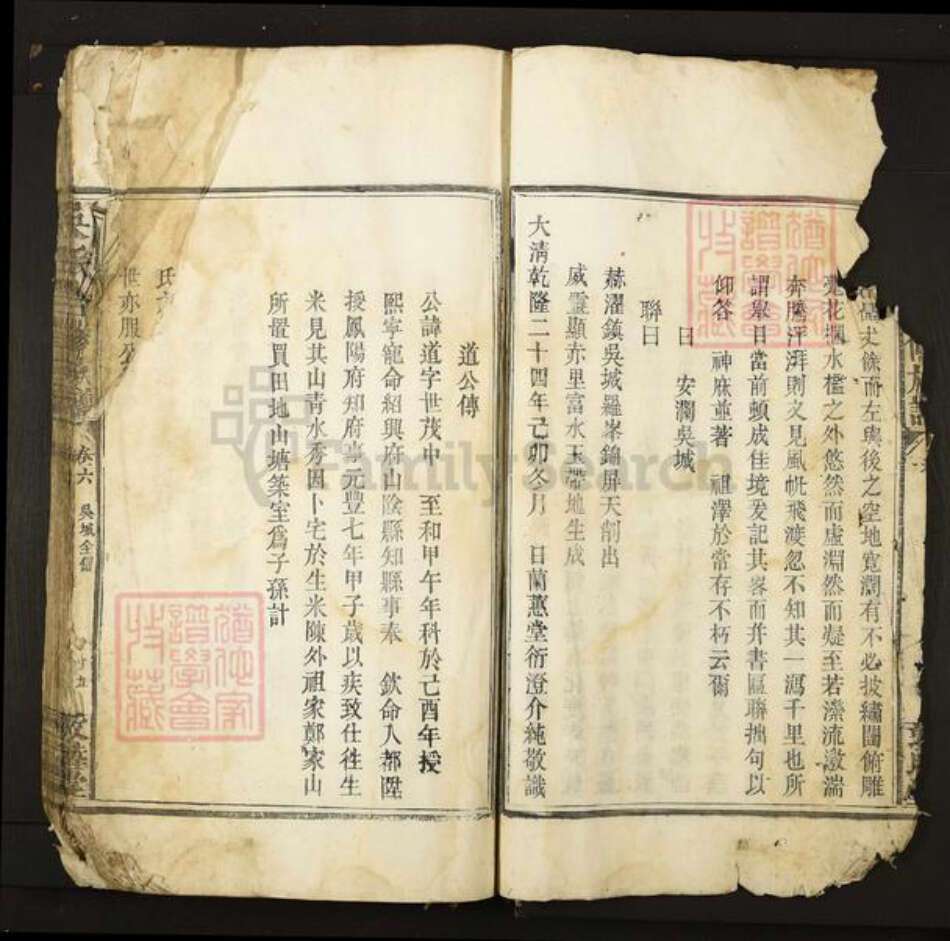 丈餘而左與後之空地寬濶有不必披繡闥俯雕
甍花欄水檻之外悠然而虛淵然而凝至若瀠流激湍
奔騰汗湃則又見風帆飛渡忽不知其一瀉千里也所
謂舉目當前頓成佳境爰記其畧而并書區聯拙句以
仰答 神庥並著 祖澤於常存不朽云爾
曰 安瀾吳城
聯曰
赫濯鎮吳城羅峯錦屏天削出
威靈顯亦里富水玉帶地生成
大清乾隆二十四年己卯冬月 日蘭蕙堂衍澄介純敬識
道公傳
公諱道字世茂中 至和甲午年科於己酉年授
熙寧寵命紹興府山陰縣知縣事奉 欽命入都陞
授鳳陽府知府事元豐七年甲子歲以疾致仕徃生
米見其山青水秀因卜宅於生米陳外祖家鄭家山
所置買田地山塘築室爲子孫計
氏
世亦服公
卷六 吳城全圖
FamilySearch